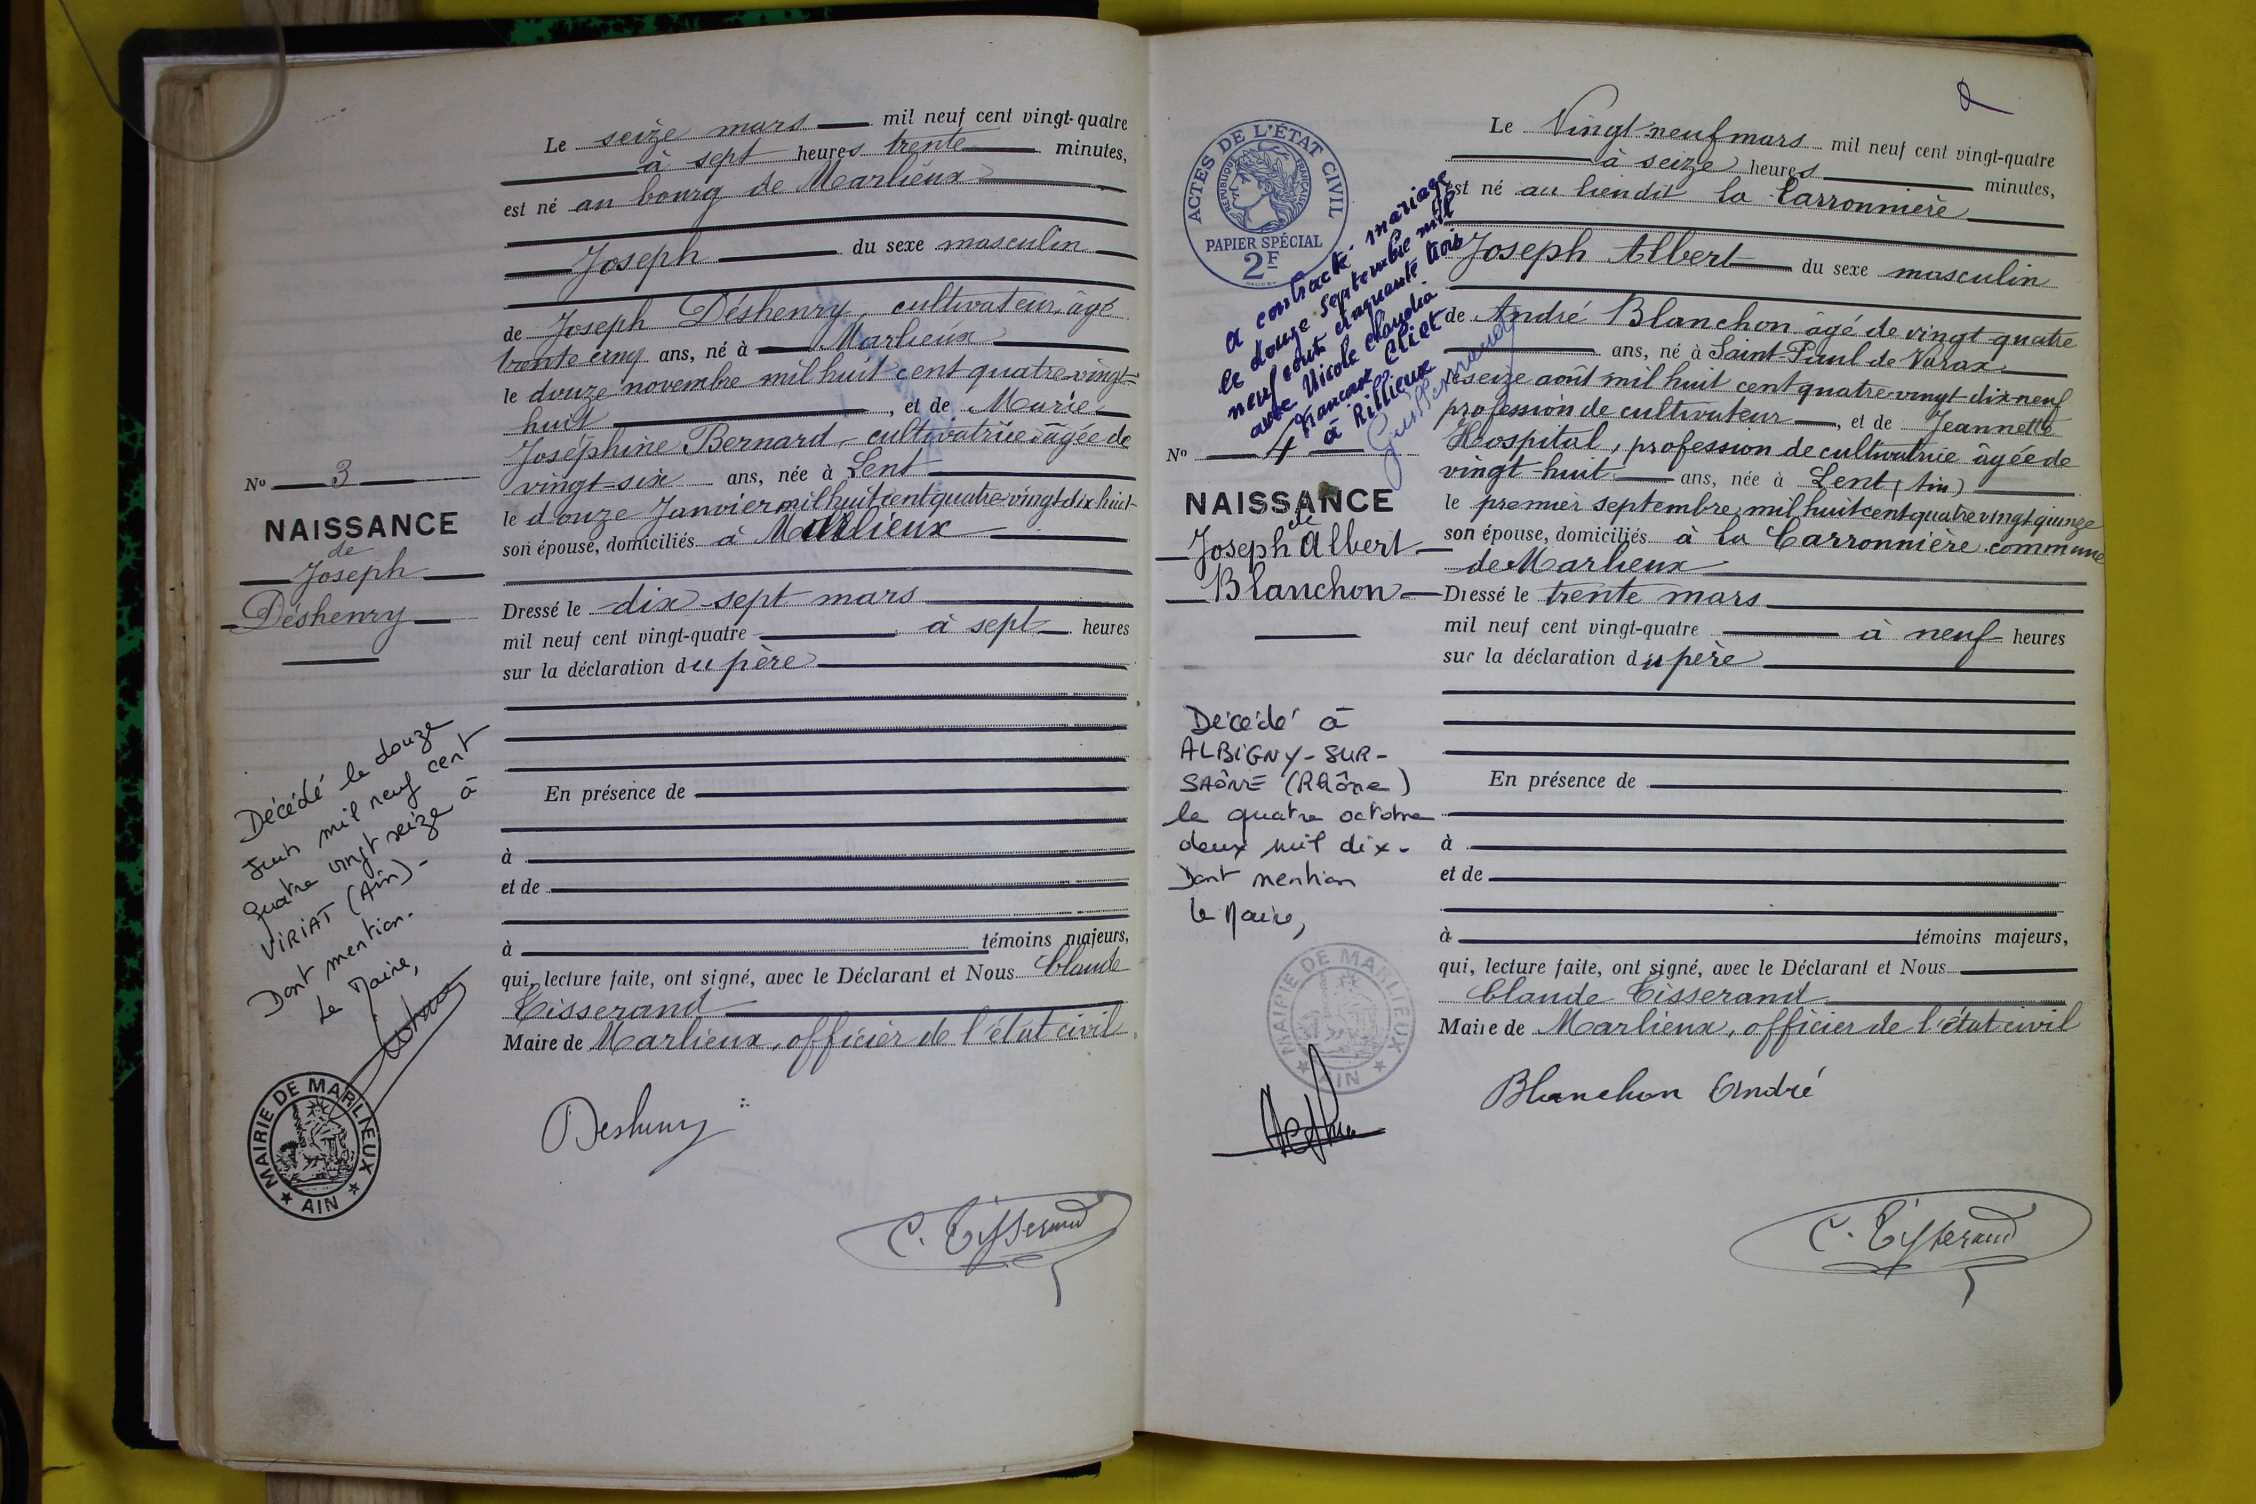 Le seize mars mil neuf cent vingt-quatre
à sept heures trente minutes,
est né au bourg de Marlieux
Joseph du sexe masculin
de Joseph Déshenry cultivateur, âgé
trente cinq ans, né à Marlieux
le douze novembre mil huit cent quatre-vingt-
huit, et de Marie
Joséphine Bernard, cultivatrice âgée de
vingt-six ans, née à Lent
le douze Janvier mil huit cent quatre-vingt dix huit
son épouse, domiciliés à Marlieux
Dressé le dix-sept mars
mil neuf cent vingt-quatre à sept heures
sur la déclaration du père
En présence de
à
et de
à témoins majeurs,
qui, lecture faite, ont signé, avec le Déclarant et Nous Claude
Tisserand
Maire de Marlieux, officier de l'état civil
Deshenry
C. Tisserand
No 3
NAISSANCE
de
Joseph
Déshenry
Décédé le douze
Juin mil neuf cent
quatre vingt seize à
VIRIAT (Ain)-
Dont mention.
Le Maire,
MAIRIE DE MARLIEUX
AIN
ACTES DE L'ÉTAT CIVIL
RÉPUBLIQUE FRANÇAISE
PAPIER SPÉCIAL
2F
a contracté mariage
le douze septembre mil
neuf cent cinquante trois
avec Nicole Claudia
Françoise Cliet
à Rillieux
No 4
NAISSANCE
de
Joseph Albert
Blanchon
Décédé à
ALBIGNY-SUR-
SAÔNE (Rhône)
le quatre octobre
deux mil dix-
Dont mention
Le Maire,
MAIRIE DE MARLIEUX
AIN
Le Vingt-neuf mars mil neuf cent vingt-quatre
à seize heures minutes,
est né au lieu dit la Carronnière
Joseph Albert du sexe masculin
de André Blanchon âgé de vingt-quatre
ans, né à Saint-Paul de Varax
le seize août mil huit cent quatre-vingt-dix-neuf
profession de cultivateur, et de Jeannette
Hospital, profession de cultivatrice âgée de
vingt-huit ans, née à Lent (Ain)
le premier septembre mil huit cent quatre vingt quinze
son épouse, domiciliés à la Carronnière commune
de Marlieux
Dressé le trente mars
mil neuf cent vingt-quatre à neuf heures
sur la déclaration du père
En présence de
à
et de
à témoins majeurs,
qui, lecture faite, ont signé, avec le Déclarant et Nous
Claude Tisserand
Maire de Marlieux, officier de l'état civil
Blanchon André
C. Tisserand